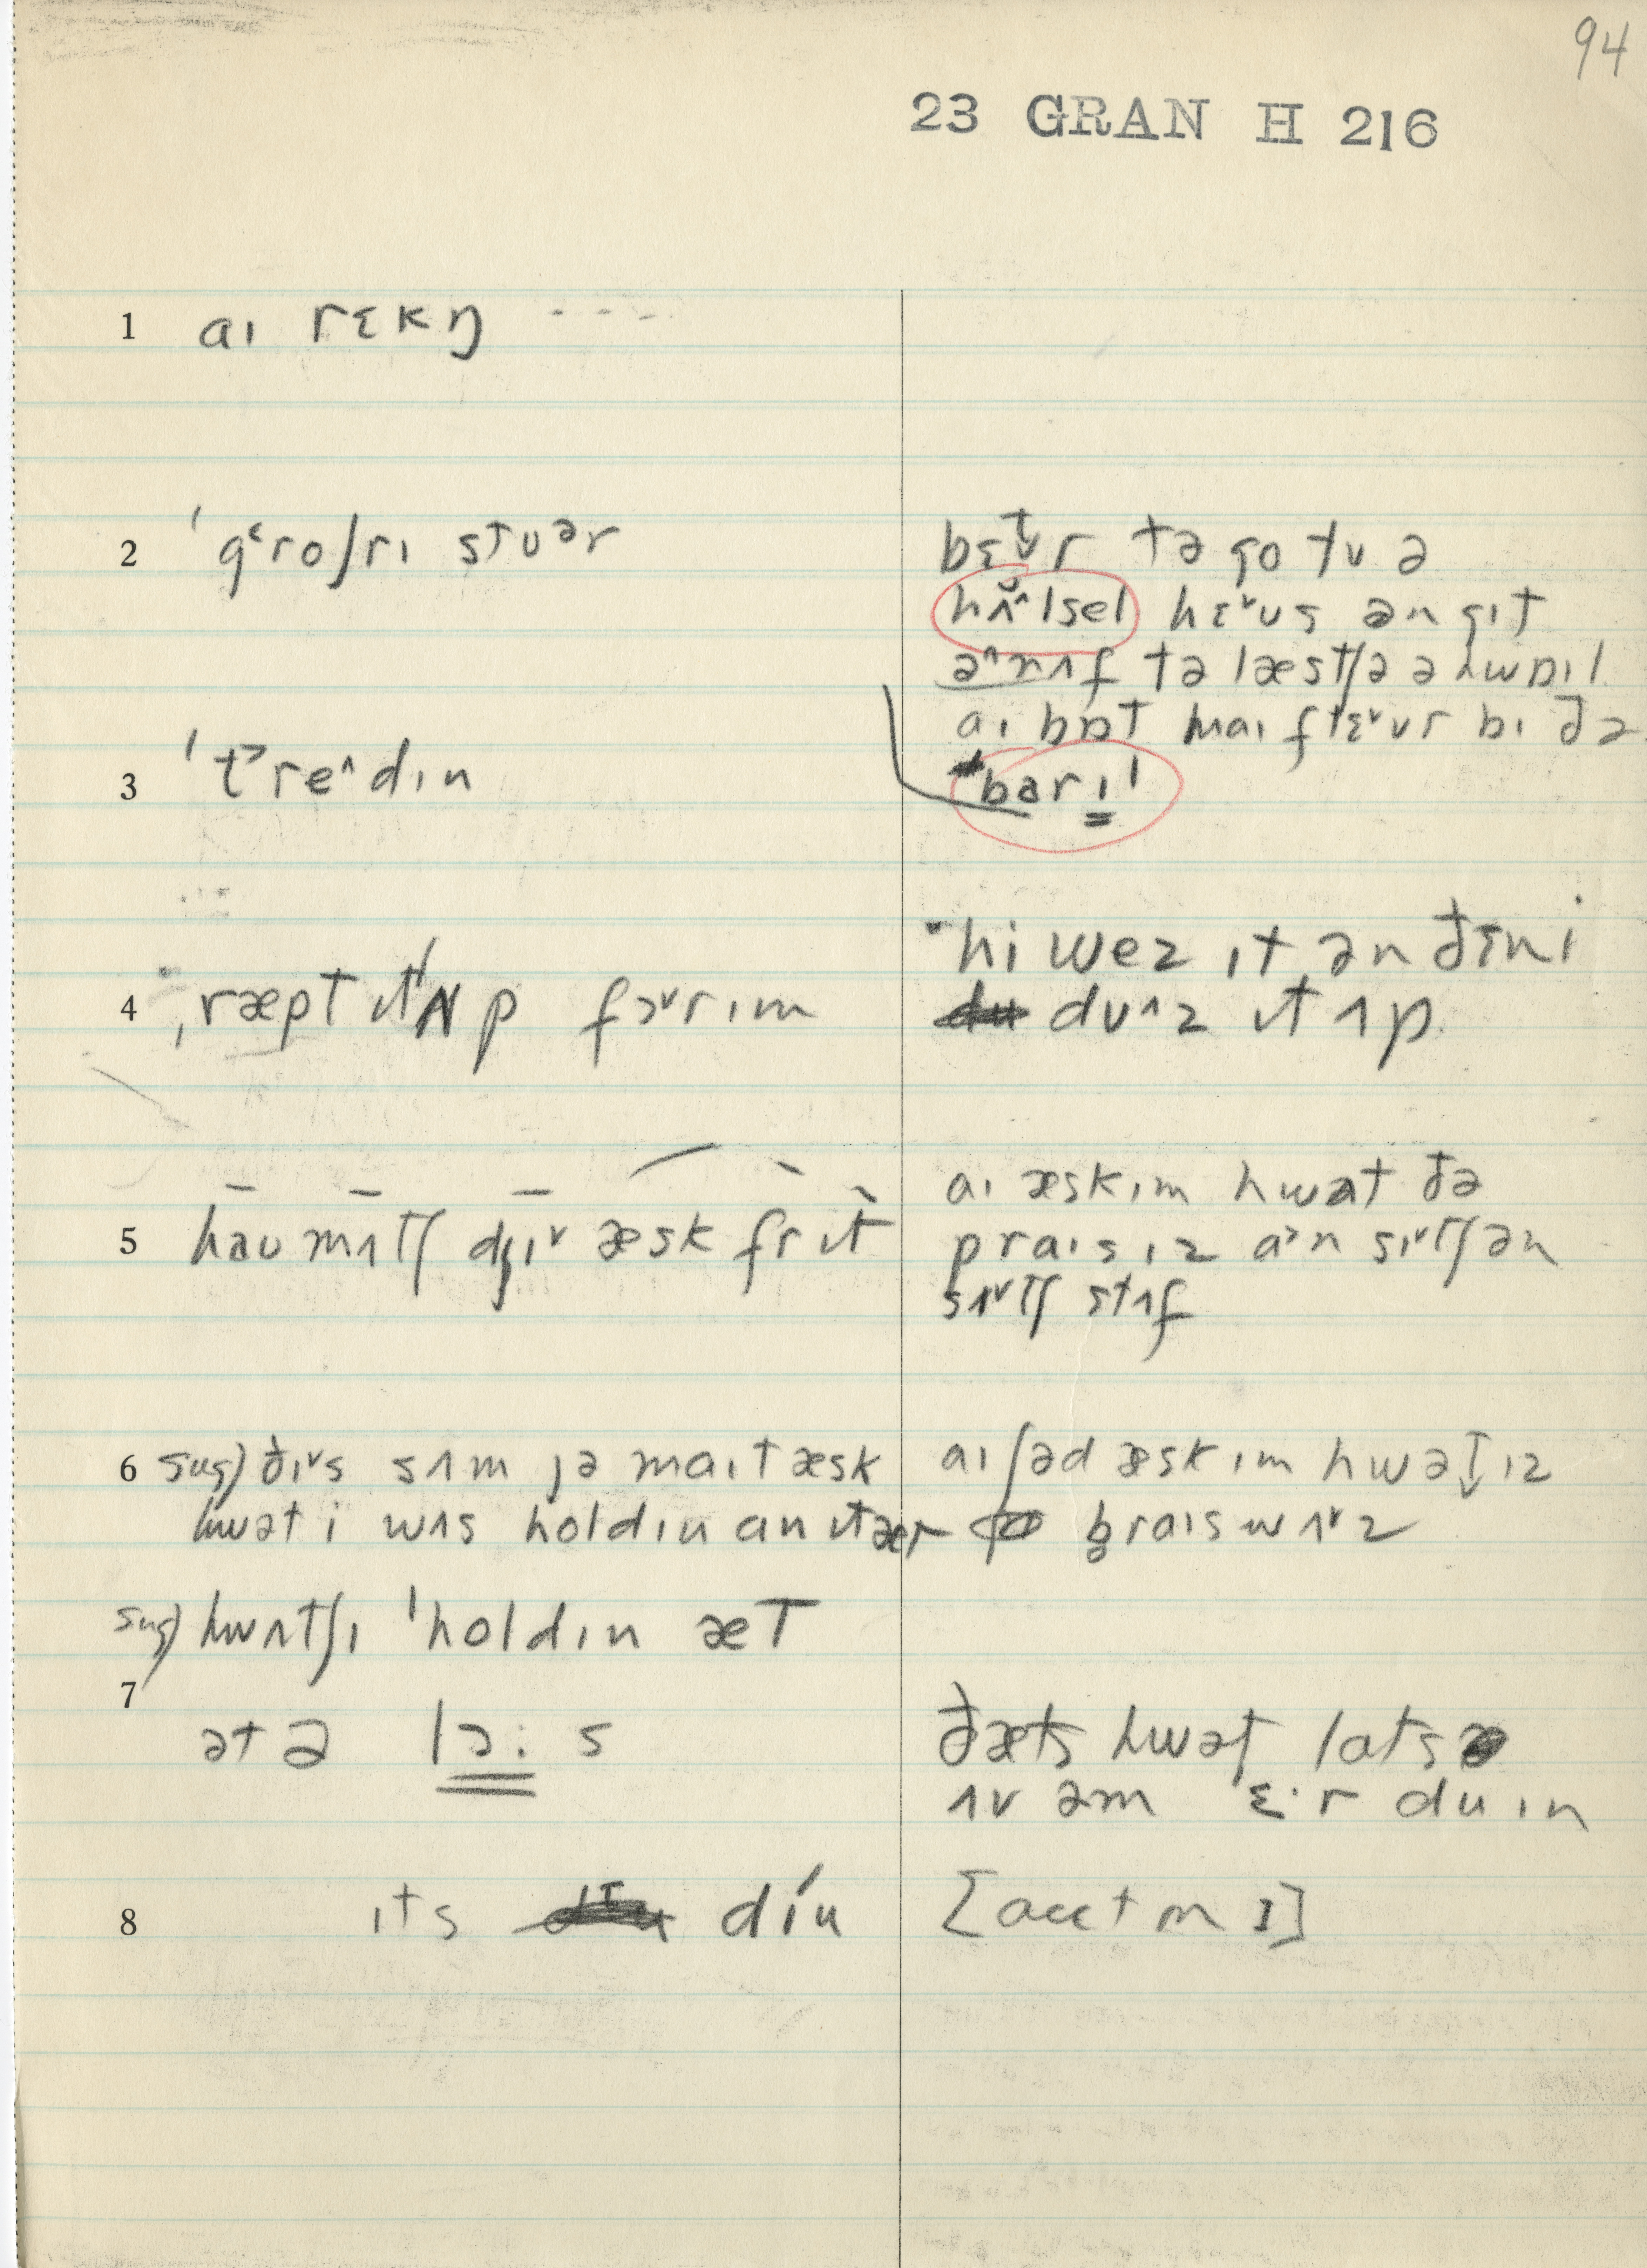 94
23 GRAN H 216
1 aɪ rɛkŋ ----
2 ˈgᵋroʃrɪ stʊᵊr
bɛt̬r tə go tʊ ə
hʌ̆ˆlsel hɛ˅ʊs ən gɪt
əˆnʌf tə læstʃə ə hwɒɪl
aɪ bɒt maɪ flɛ˅ʊr bɪ ðə
barɪl
3 ˈt˃reˆdɪn
4 ˌræpt ɪt ʌp fɔ˅rɪm
hi wez ɪt ən ðɛn i
duˆz ɪt ʌp
5 haʊ mʌtʃ dʒɪ˅ æsk fr ɪt
aɪ æskɪm hwat ðə
praɪs ɪz a˃n sɪ˅tʃ ən
sɪ˅tʃ stʌf
6 sug) ðɪ˅s sʌm jə maɪt æsk
hwət i wʌs holdɪn an ɪt ær
aɪ ʃəd æsk ɪm hwət̬ ɪz
b̥raɪs wʌ˅z
sug) hwʌtʃɪ ˈholdɪn æt
7 ət ə lɔ: s
ðæts hwət lats
ʌv əm ɛ·r duɪn
8 ɪts díu
[acct m I]